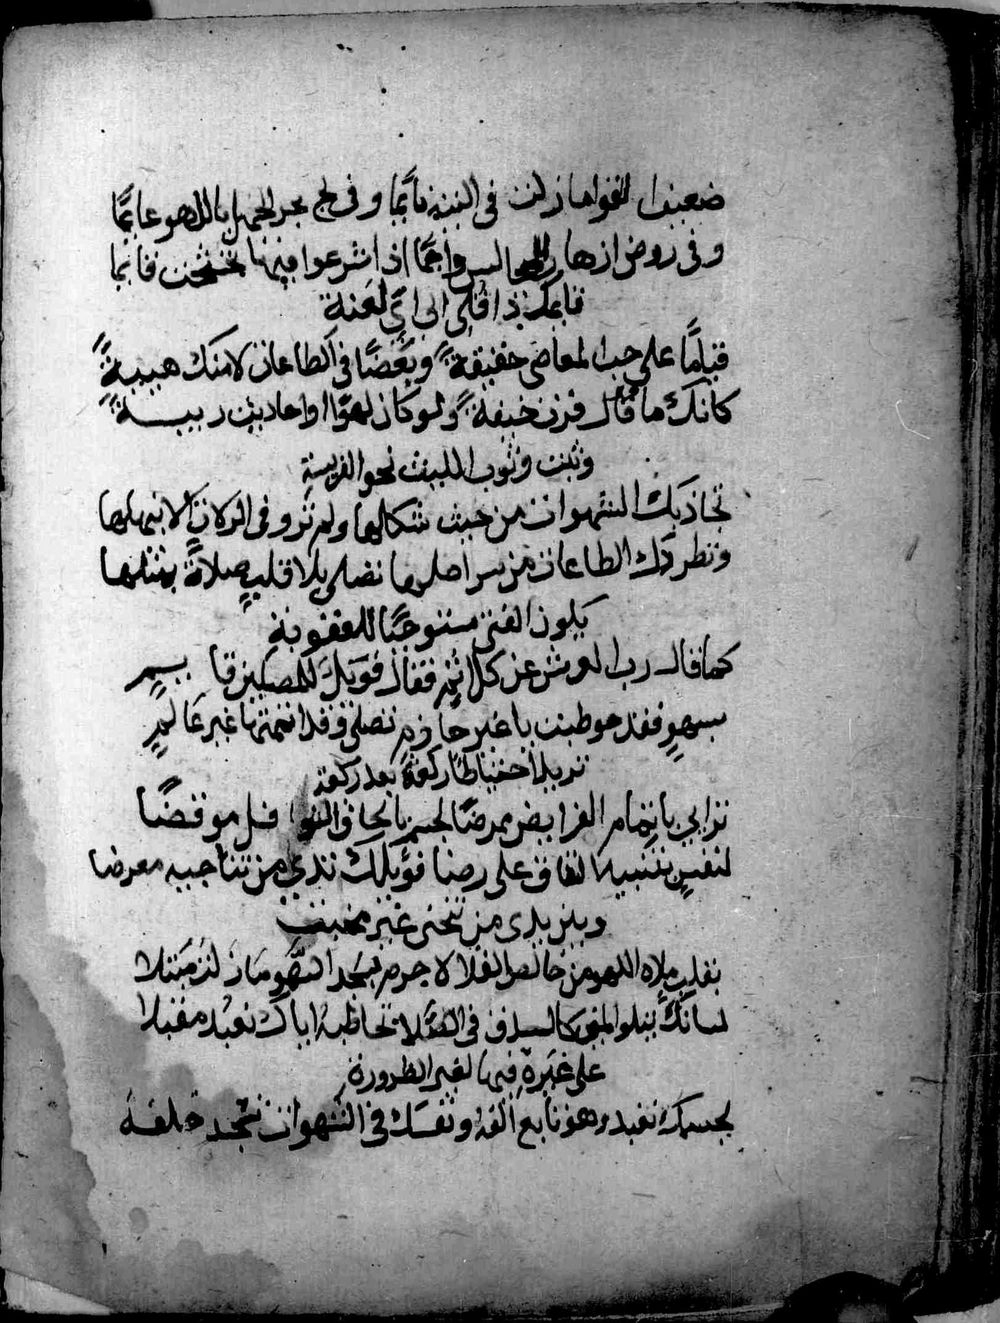 ضعيف القوا مازلت في التيه نائما وفي لج بحر الجهل باللهو عائما
وفي روض ازهار المجالس واجما اذا شرعوا فيها نحثحت قائما
فايمك ذا قلي الى اي لعنة
قياما على حب المعاصي حقيقة وبغضا في الطاعات لا منك هيبة
كانك ما قال قرن خيفة ولو كان لهوا او احاديث ريبة
وثبت وثوب الليث نحو الفريسة
تجاذبك الشهوات من حيث شكلها ولم ترو في الزلات الا نبهلها
وتطردك الطاعات من سر اصلها تصلي بلا قلب صلاة بمثلها
يكون الفتى مستوجبا للعقوبة
كما قال رب العرش عن كل اثم فقال فويل للمصلين قا بسم
بسهو فقد خوطبت يا غير حازم تصلي وقد اتممتها غير عالم
تزيد احتياطا ركعة بعد ركعة
تراي باتمام الفرايض مرضا لجسم بالحاق النوافل موقضا
لنفس بتنبيه النفاق على رضا فويلك تدري من تناجيه معرضا
وبين يدي من تنحني غير مخبت
بقلب ملاه اللهو من خالص القلا لا جرم بسجد السهو مازلت مبتلا
لسانك يتلو المنى كالسبق في الفلا تخاطبه اياك نعبد مقبلا
على غيره فيها لغير الضرورة
بجسمك تعبد وهو تابع الفه ونفسك في الشهوات تجد خلفه